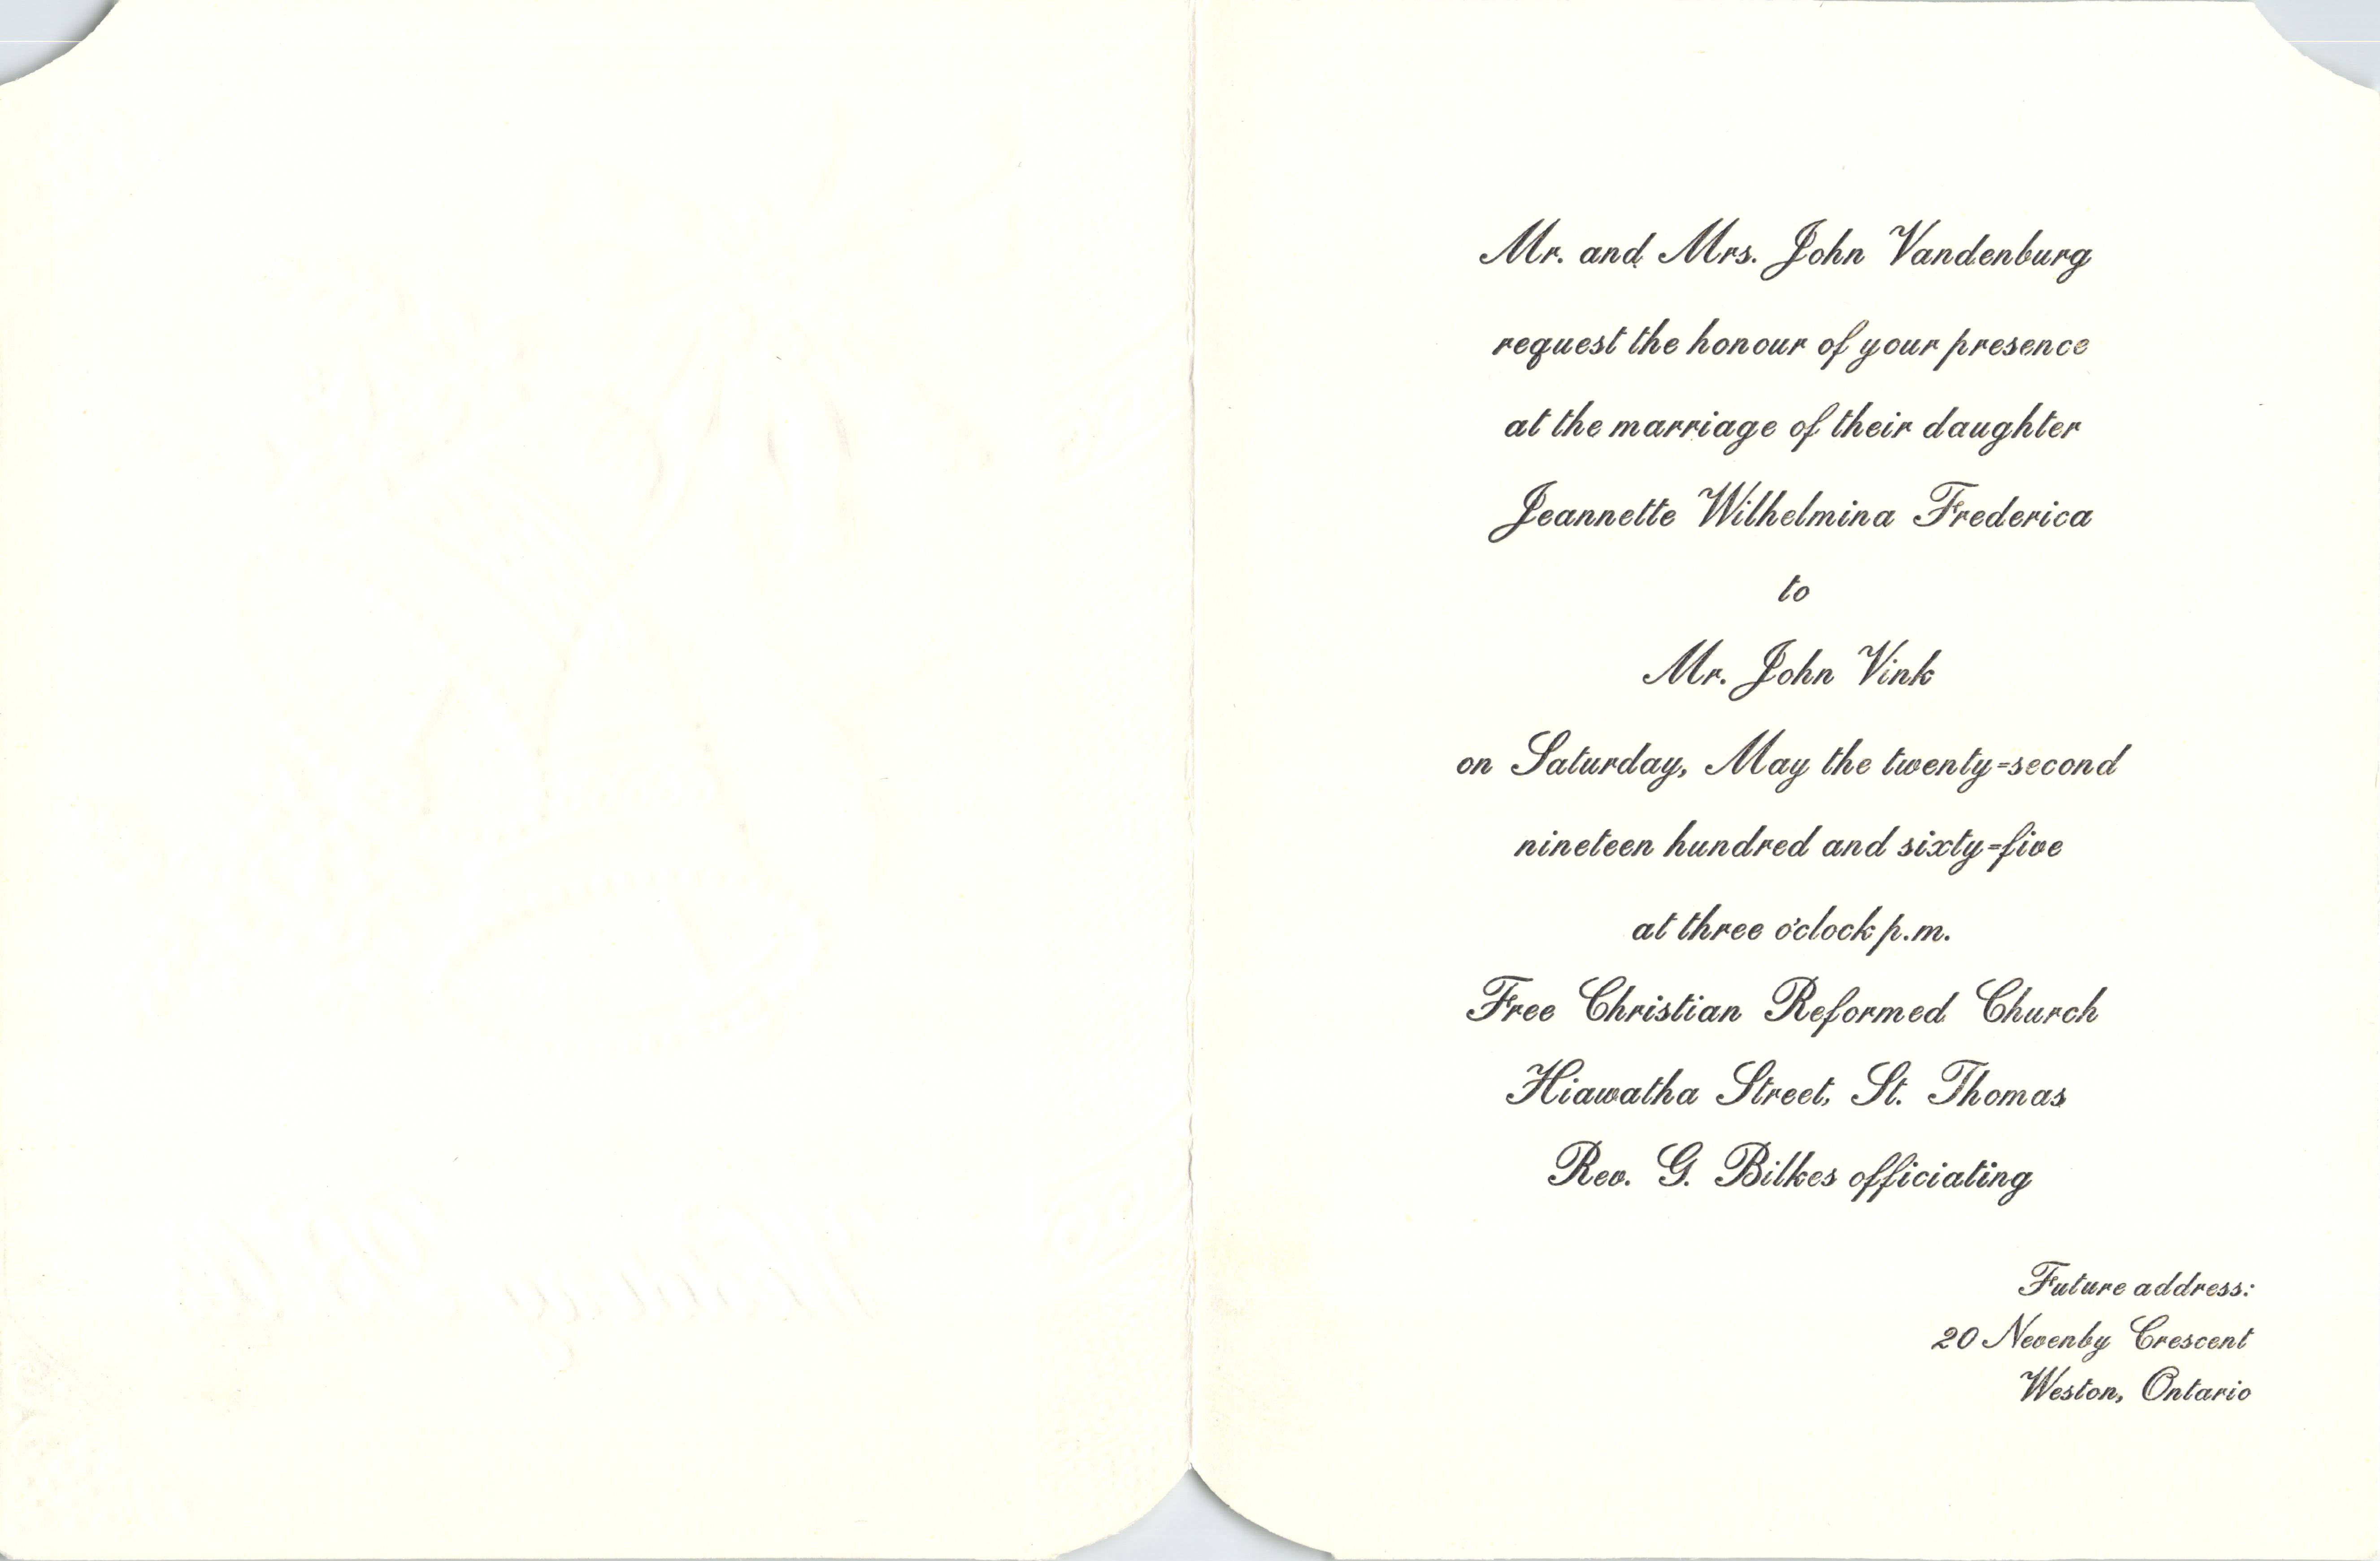 Mr. and Mrs. John Vandenburg
request the honour of your presence
at the marriage of their daughter
Jeannette Wilhelmina Frederica
to
Mr. John Vink
on Saturday, May the twenty=second
nineteen hundred and sixty=five
at three o'clock p.m.
Free Christian Reformed Church
Hiawatha Street, St. Thomas
Rev. G. Bilkes officiating
Future address:
20 Nevenby Crescent
Weston, Ontario